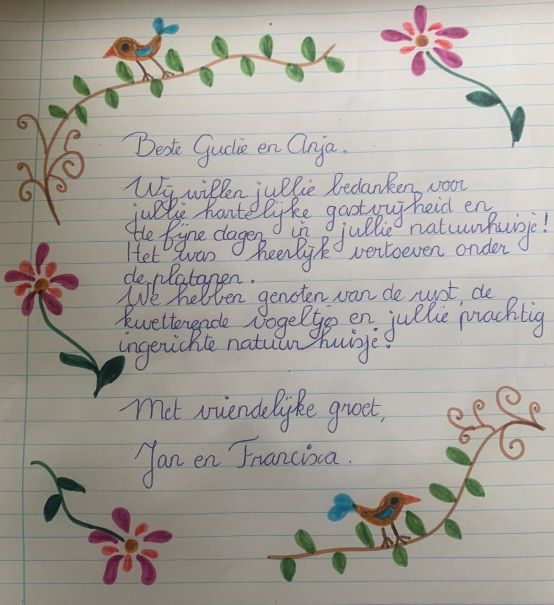 Beste Gudie en Anja,
Wij willen jullie bedanken voor
jullie hartelijke gastvrijheid en
de fijne dagen in jullie natuurhuisje!
Het was heerlijk vertoeven onder
de platanen.
We hebben genoten van de rust, de
kwetterende vogeltjes en jullie prachtig
ingerichte natuurhuisje!
Met vriendelijke groet,
Jan en Francisca.